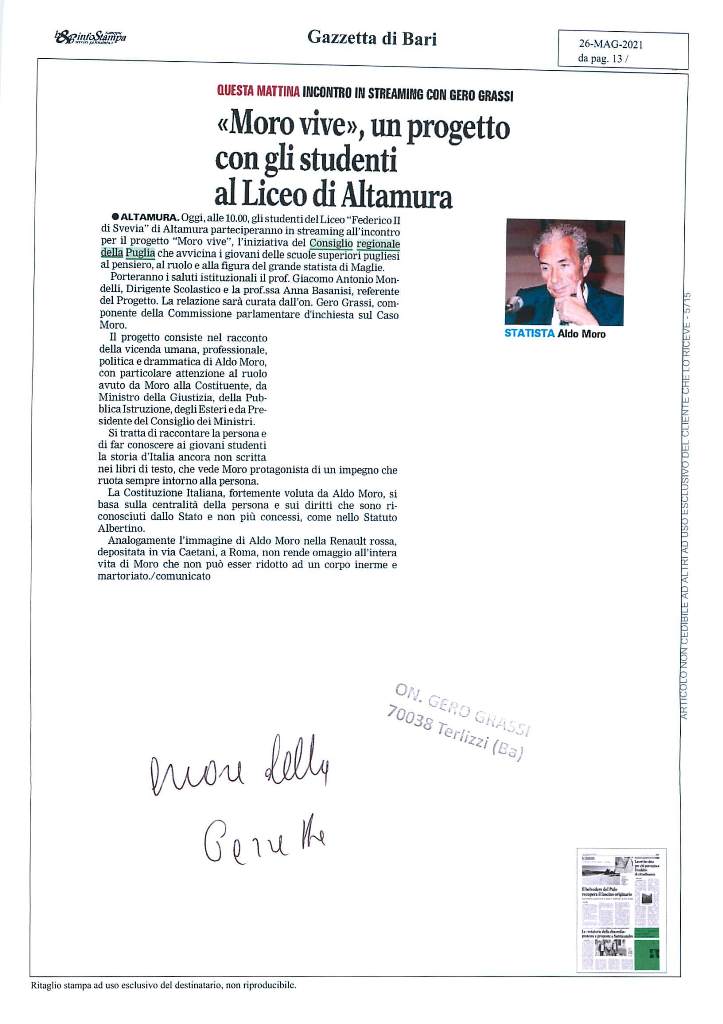 infoStampa
Gazzetta di Bari
26-MAG-2021
da pag. 13 /
QUESTA MATTINA INCONTRO IN STREAMING CON GERO GRASSI
«Moro vive», un progetto
con gli studenti
al Liceo di Altamura
● ALTAMURA. Oggi, alle 10.00, gli studenti del Liceo "Federico II
di Svevia" di Altamura parteciperanno in streaming all'incontro
per il progetto "Moro vive", l'iniziativa del Consiglio regionale
della Puglia che avvicina i giovani delle scuole superiori pugliesi
al pensiero, al ruolo e alla figura del grande statista di Maglie.
Porteranno i saluti istituzionali il prof. Giacomo Antonio Mon-
delli, Dirigente Scolastico e la prof.ssa Anna Basanisi, referente
del Progetto. La relazione sarà curata dall'on. Gero Grassi, com-
ponente della Commissione parlamentare d'inchiesta sul Caso
Moro.
Il progetto consiste nel racconto
della vicenda umana, professionale,
politica e drammatica di Aldo Moro,
con particolare attenzione al ruolo
avuto da Moro alla Costituente, da
Ministro della Giustizia, della Pub-
blica Istruzione, degli Esteri e da Pre-
sidente del Consiglio dei Ministri.
Si tratta di raccontare la persona e
di far conoscere ai giovani studenti
la storia d'Italia ancora non scritta
nei libri di testo, che vede Moro protagonista di un impegno che
ruota sempre intorno alla persona.
La Costituzione Italiana, fortemente voluta da Aldo Moro, si
basa sulla centralità della persona e sui diritti che sono ri-
conosciuti dallo Stato e non più concessi, come nello Statuto
Albertino.
Analogamente l'immagine di Aldo Moro nella Renault rossa,
depositata in via Caetani, a Roma, non rende omaggio all'intera
vita di Moro che non può esser ridotto ad un corpo inerme e
martoriato./comunicato
STATISTA Aldo Moro
ARTICOLO NON CEDIBILE AD ALTRI AD USO ESCLUSIVO DEL CLIENTE CHE LO RICEVE - 5715
ON. GERO GRASSI
70038 Terlizzi (Ba)
Il belvedere del Pulo
recupera il fascino originario
Ritaglio stampa ad uso esclusivo del destinatario, non riproducibile.